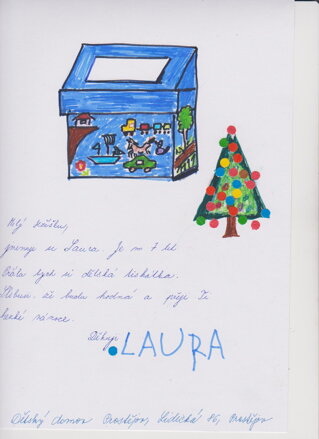 Milý Ježíšku,
jmenuji se Laura. Je mi 7 let
Přála bych si dětská
Slibuji, že budu hodná a přeji Ti
hezké vánoce.
Děkuji
LAURA
Dětský domov Prostějov, Lidická 86, Prostějov